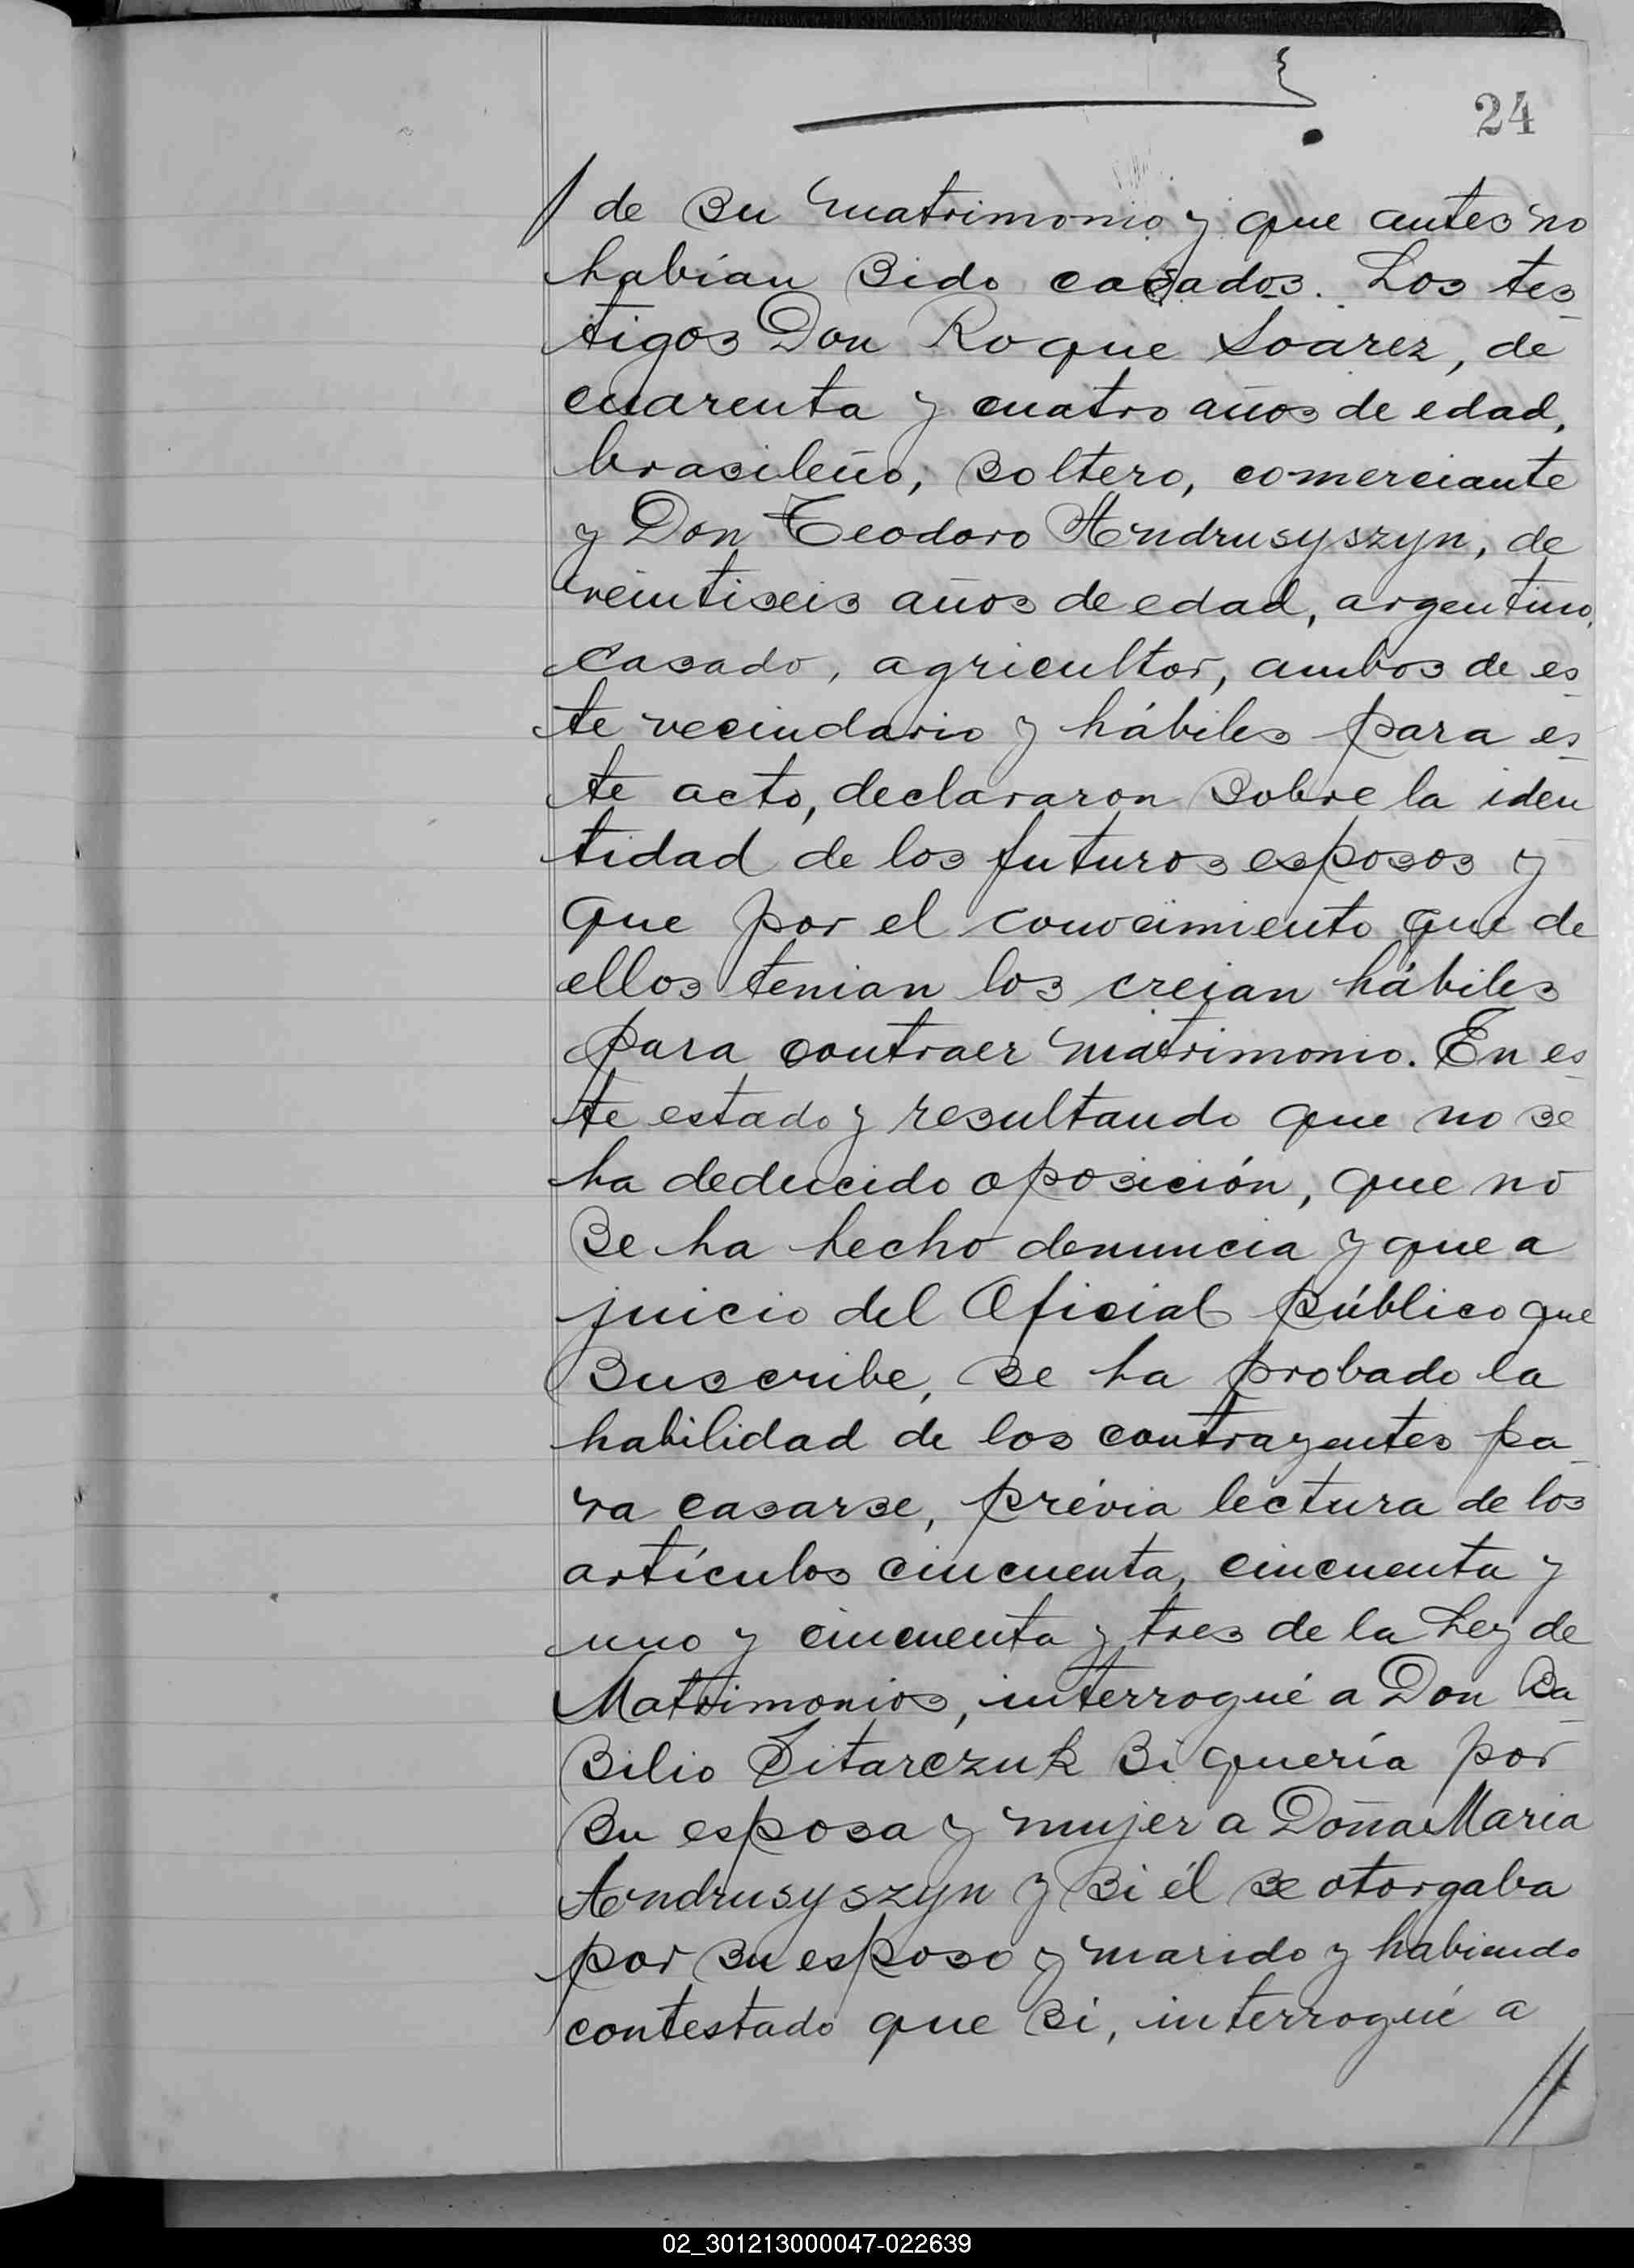 24
de su matrimonio y que antes no
habían sido casados. Los tes
tigos Don Roque Soarez, de
cuarenta y cuatro años de edad,
brasileño, soltero, comerciante
y Don Teodoro Andrusyszyn, de
veintiseis años de edad, argentino,
casado, agricultor, ambos de es
te vecindario y hábiles para es
te acto, declararon sobre la iden
tidad de los futuros esposos y
que por el conocimiento que de
ellos tenian los creian hábiles
para contraer matrimonio. En es
te estado y resultando que no se
ha deducido oposición, que no
se ha hecho denuncia y que a
juicio del Oficial público que
suscribe, se ha probado la
habilidad de los contrayentes pa
ra casarse, prévia lectura de los
artículos cincuenta, cincuenta y
uno y cincuenta y tres de la Ley de
Matrimonios, interrogué a Don Ba
silio Sitarczuk si quería por
su esposa y mujer a Doña Maria
Andrusyszyn y si él se otorgaba
por su esposo y marido y habiendo
contestado que si, interrogué a
//
02_301213000047-022639